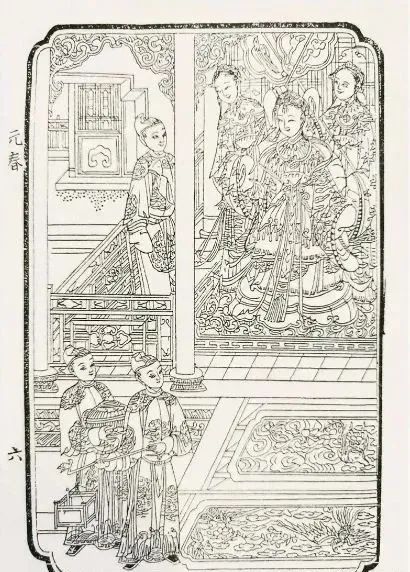 元春
六